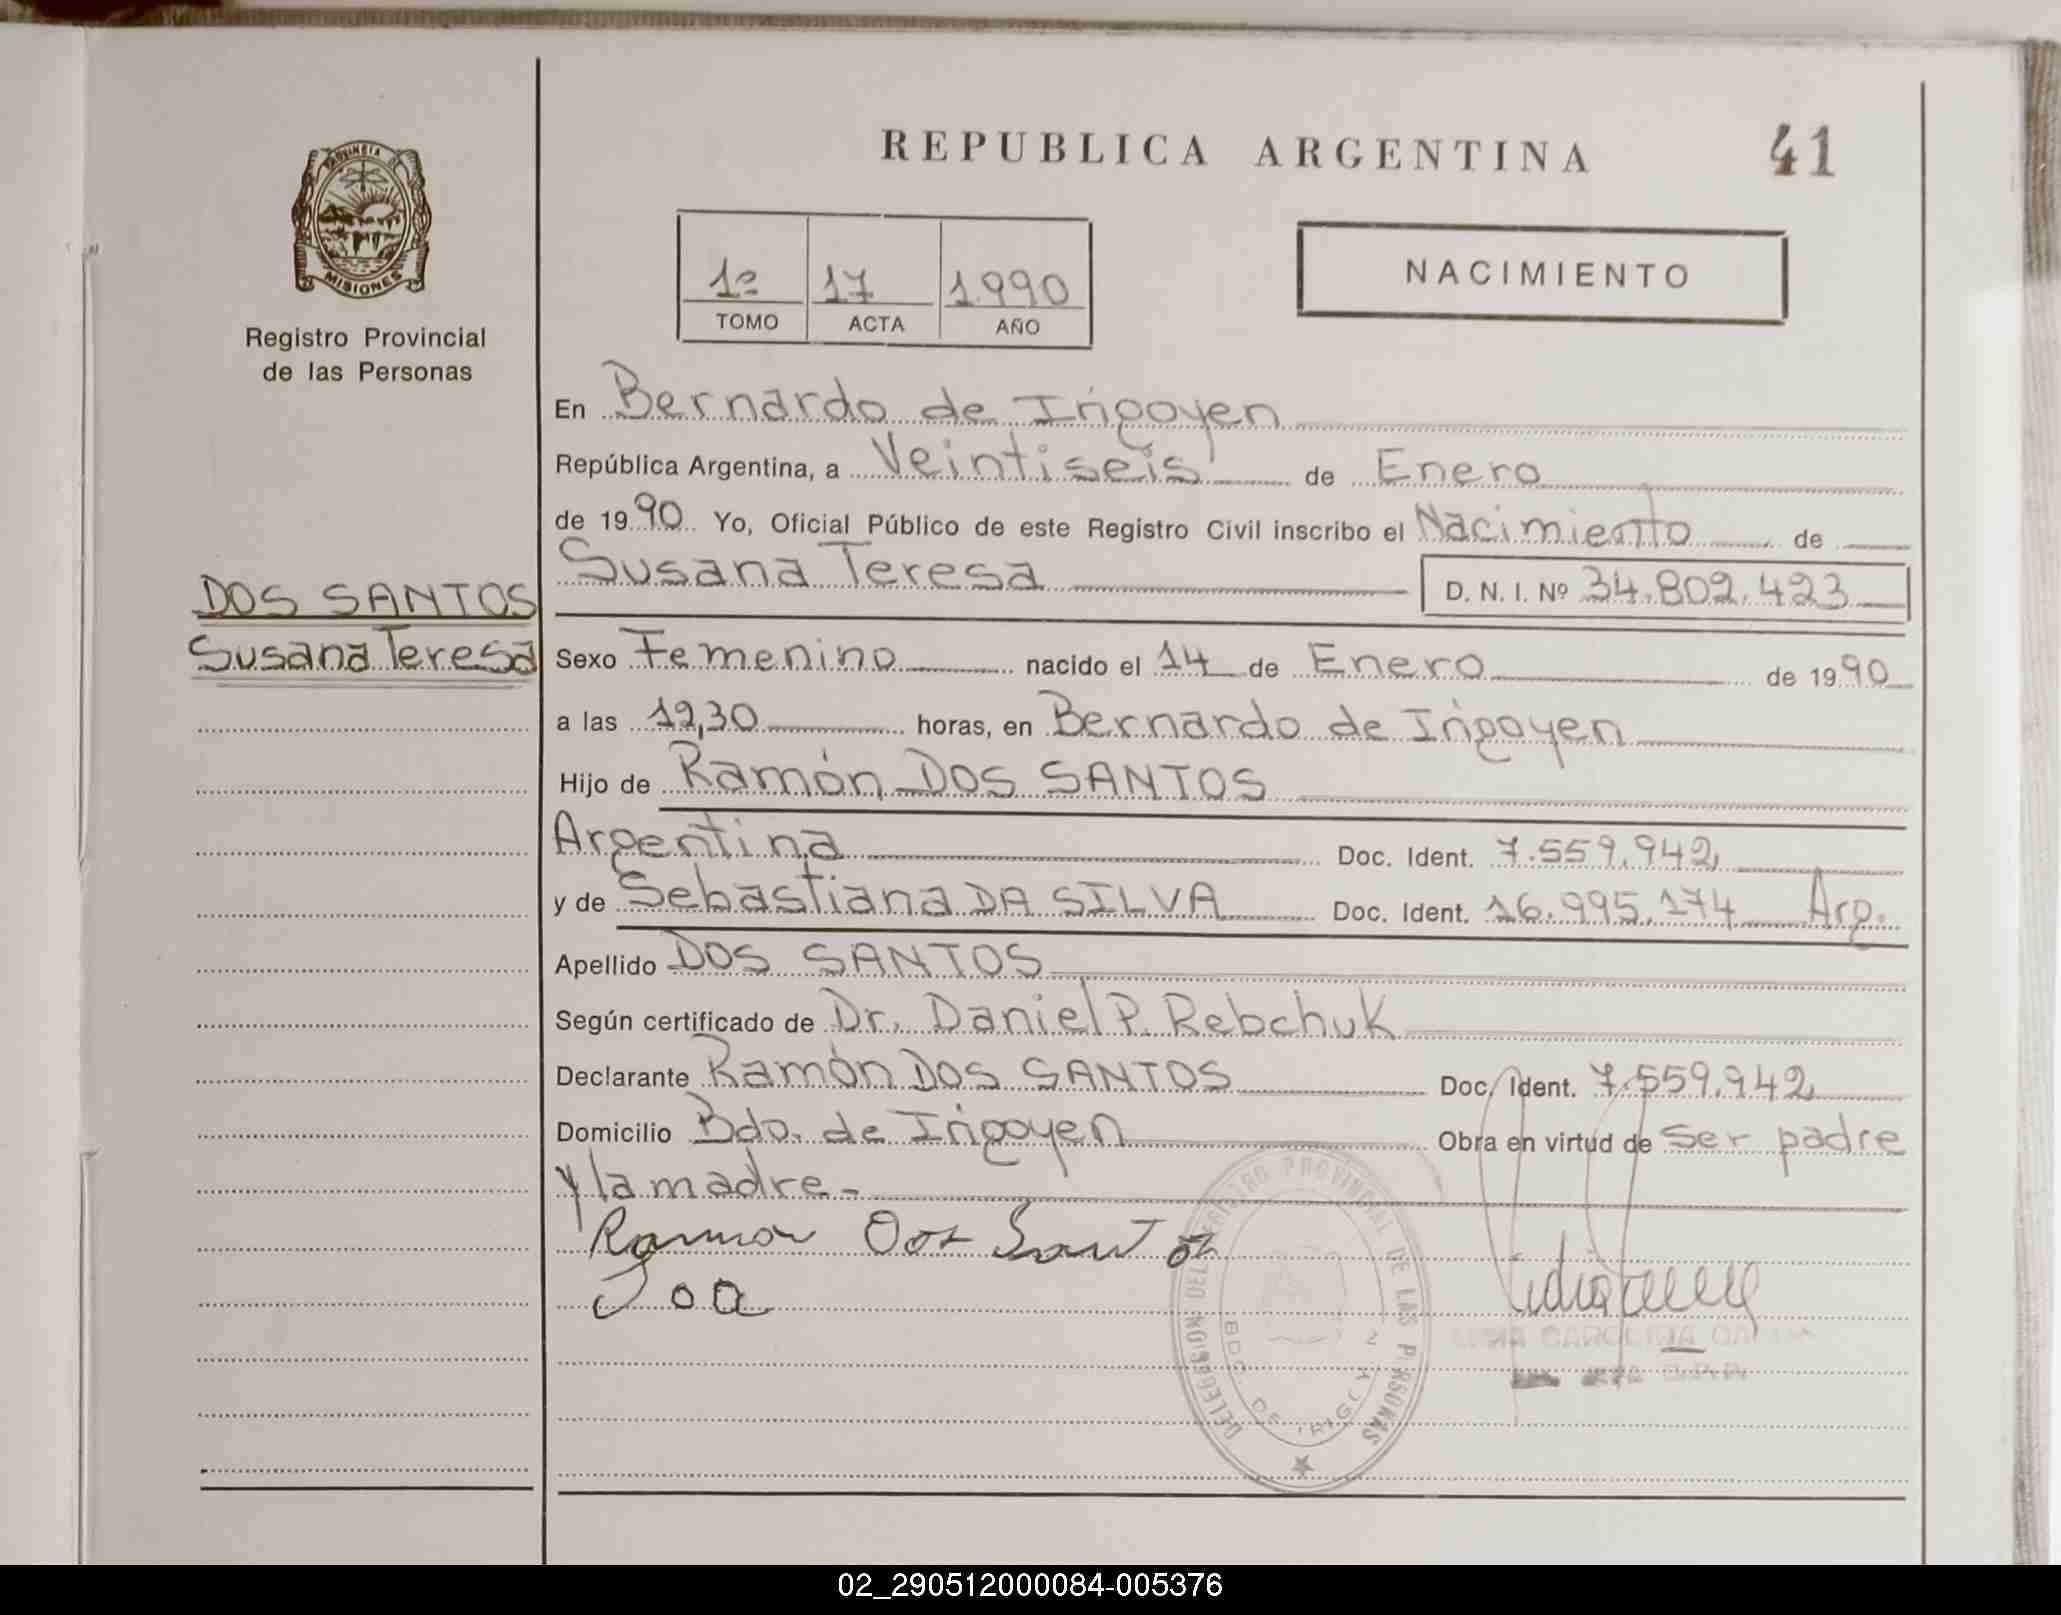 REPUBLICA ARGENTINA
41
PROVINCIA DE
MISIONES
Registro Provincial
de las Personas
1º 17 1990
TOMO ACTA AÑO
NACIMIENTO
En Bernardo de Irigoyen
República Argentina, a Veintiseis de Enero
de 1990 Yo, Oficial Público de este Registro Civil inscribo el Nacimiento de
Susana Teresa D. N. I. Nº 34.802.423
DOS SANTOS
Susana Teresa
Sexo Femenino nacido el 14 de Enero de 1990
a las 12,30 horas, en Bernardo de Irigoyen
Hijo de Ramón DOS SANTOS
Argentina Doc. Ident. 7.559.942
y de Sebastiana DA SILVA Doc. Ident. 16.995.174 Arg.
Apellido DOS SANTOS
Según certificado de Dr. Daniel P. Rebchuk
Declarante Ramón DOS SANTOS Doc. Ident. 7.559.942
Domicilio Bdo. de Irigoyen Obra en virtud de ser padre
y la madre -
Ramon Dos Santos
DELEGACION DEL REGISTRO PROVINCIAL DE LAS PERSONAS
BDO. DE IRIGOYEN
CAROLINA
02_290512000084-005376